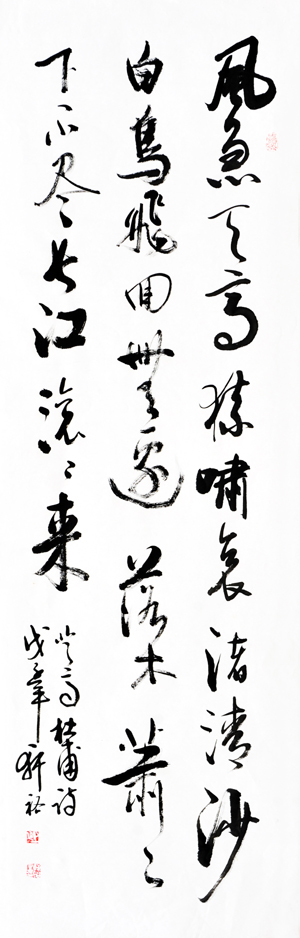 風急天高猿嘯哀渚清沙
白鳥飛回無邊落木蕭々
下不尽長江滾々来
登高 杜甫詩